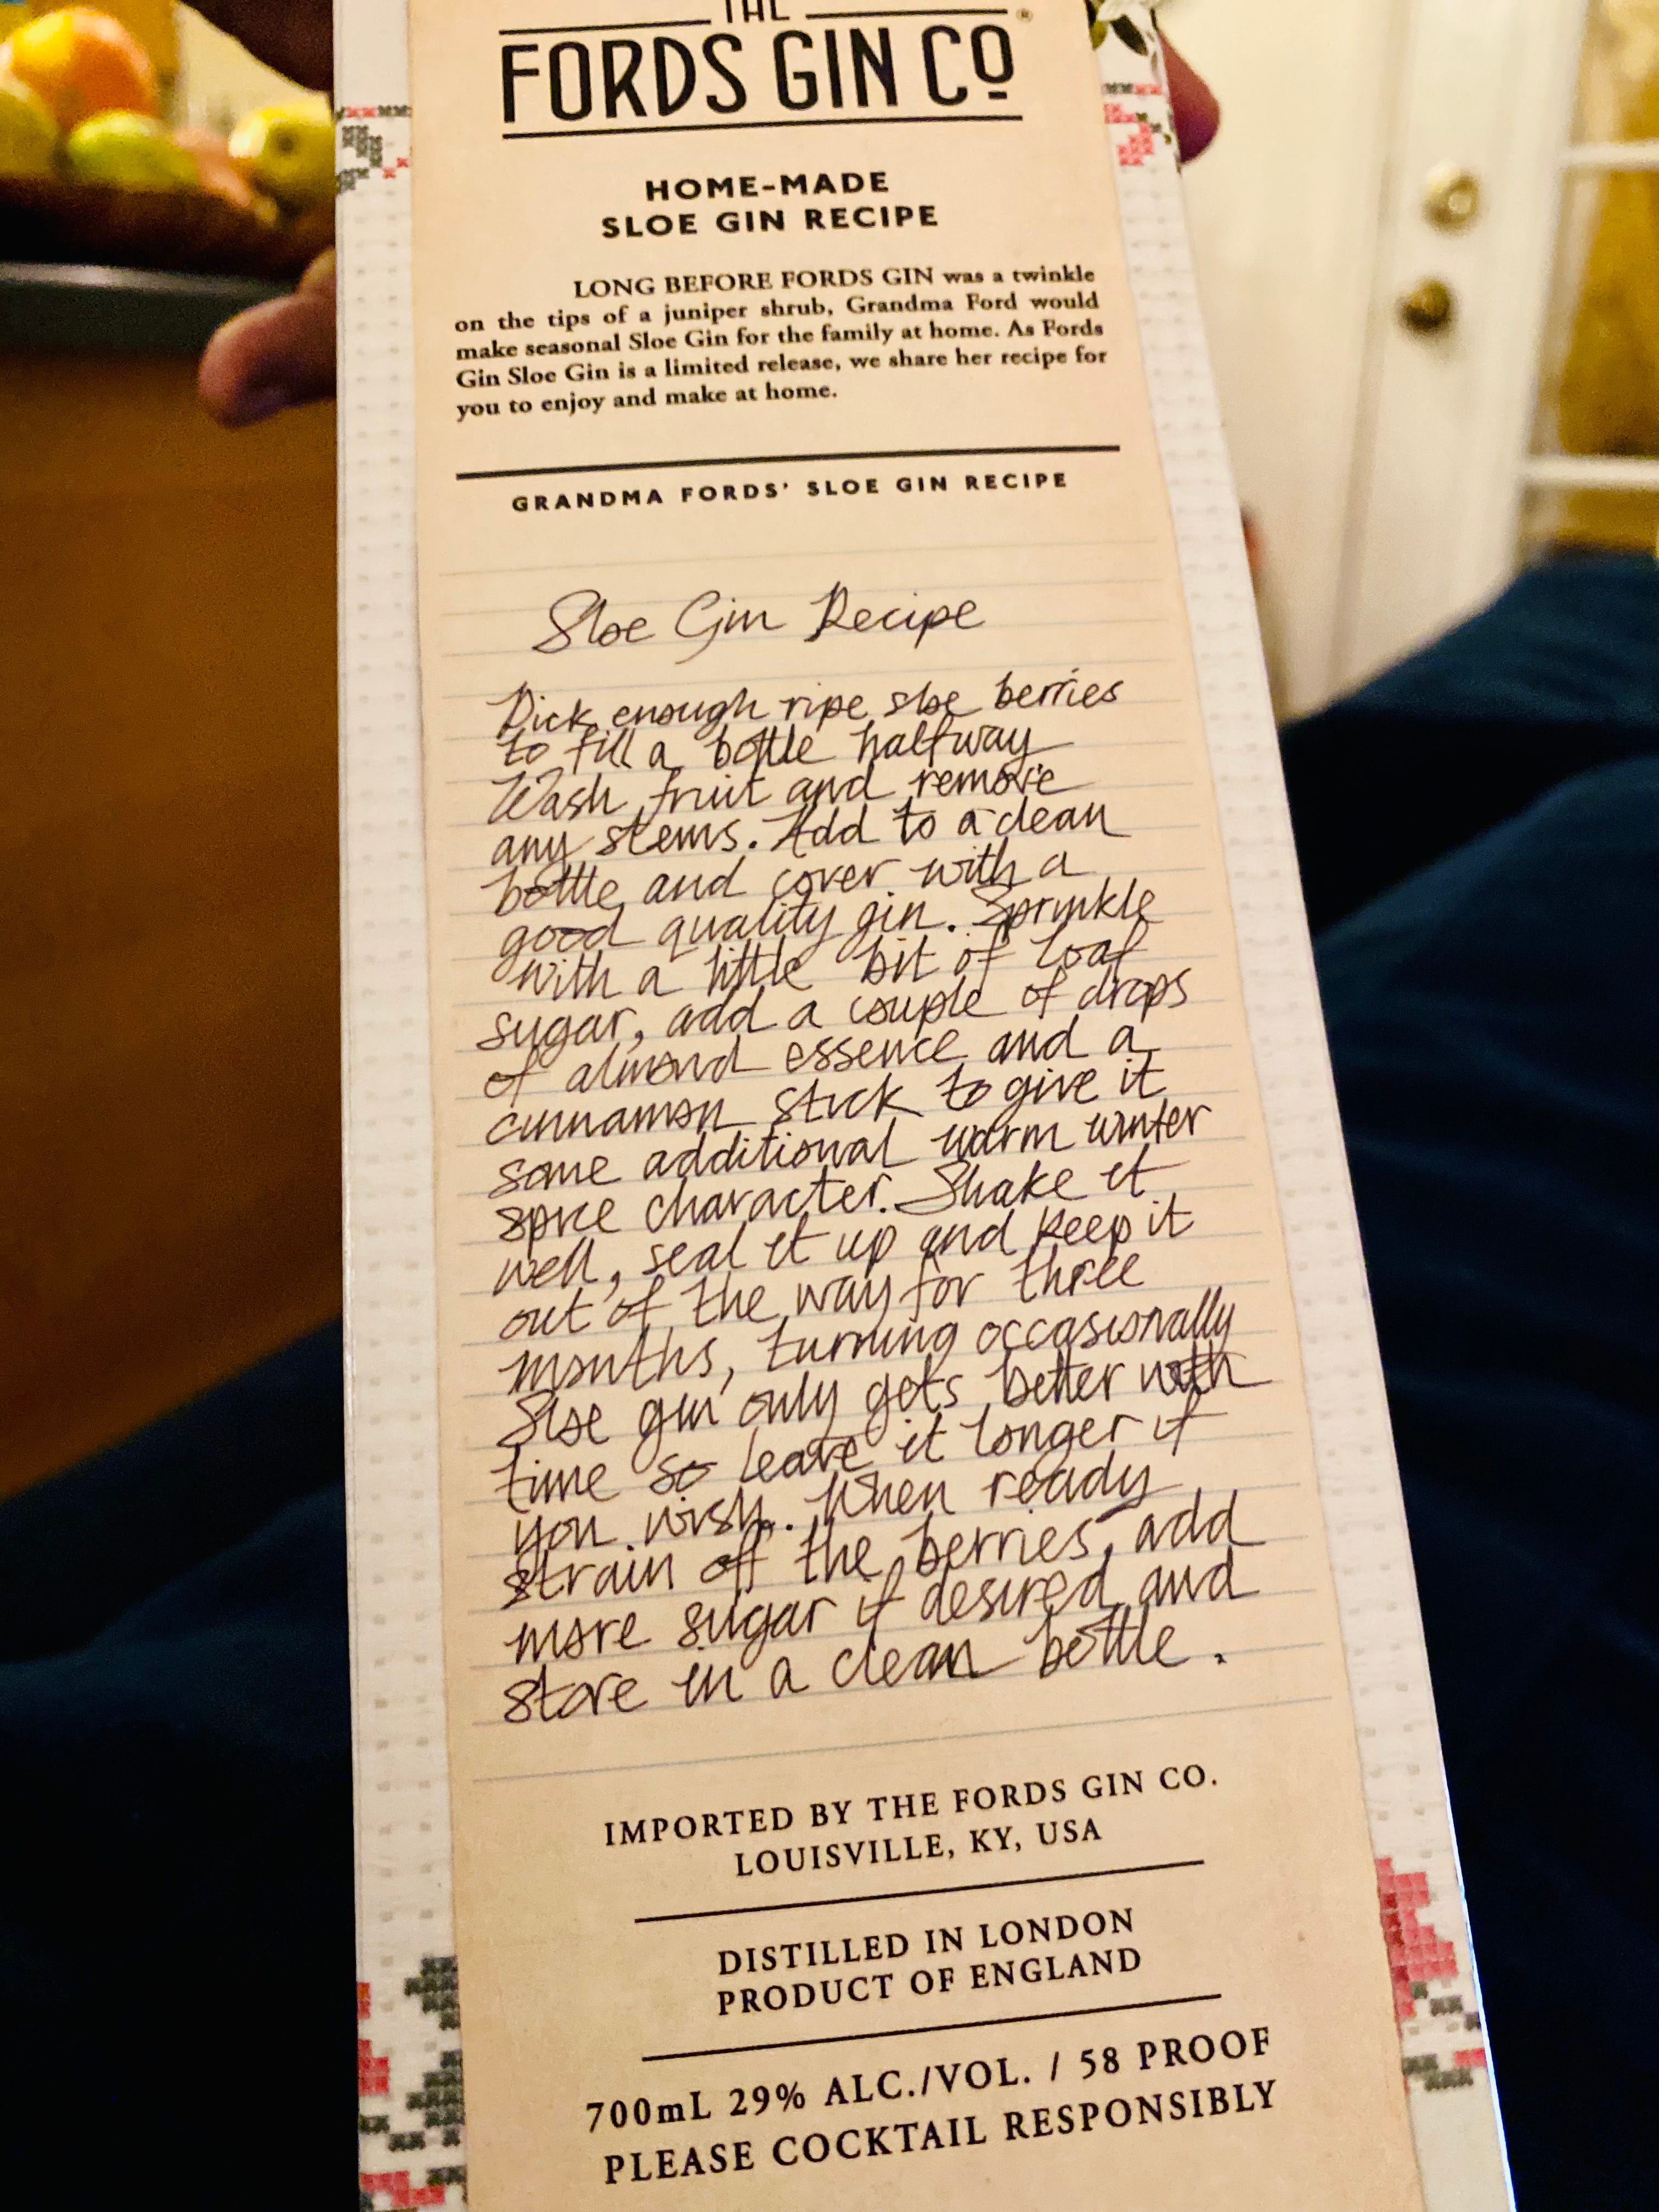 THE
FORDS GIN CO®
HOME-MADE
SLOE GIN RECIPE
LONG BEFORE FORDS GIN was a twinkle
on the tips of a juniper shrub, Grandma Ford would
make seasonal Sloe Gin for the family at home. As Fords
Gin Sloe Gin is a limited release, we share her recipe for
you to enjoy and make at home.
GRANDMA FORDS' SLOE GIN RECIPE
Sloe Gin Recipe
Pick enough ripe sloe berries
to fill a bottle halfway
Wash fruit and remove
any stems. Add to a clean
bottle and cover with a
good quality gin. Sprinkle
with a little bit of loaf
sugar, add a couple of drops
of almond essence and a
cinnamon stick to give it
some additional warm winter
spice character. Shake it
well, seal it up and keep it
out of the way for three
months, turning occasionally
Sloe gin only gets better with
time so leave it longer if
you wish. When ready
strain off the berries, add
more sugar if desired and
store in a clean bottle.
IMPORTED BY THE FORDS GIN CO.
LOUISVILLE, KY, USA
DISTILLED IN LONDON
PRODUCT OF ENGLAND
700mL 29% ALC./VOL. / 58 PROOF
PLEASE COCKTAIL RESPONSIBLY